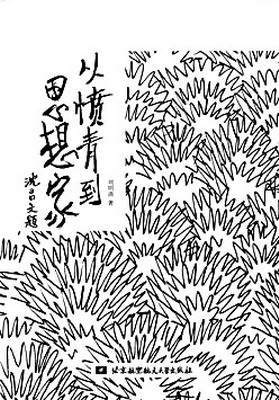 从愤青到
思想家
沈昌文题
刘明清 著
北京航空航天大学出版社